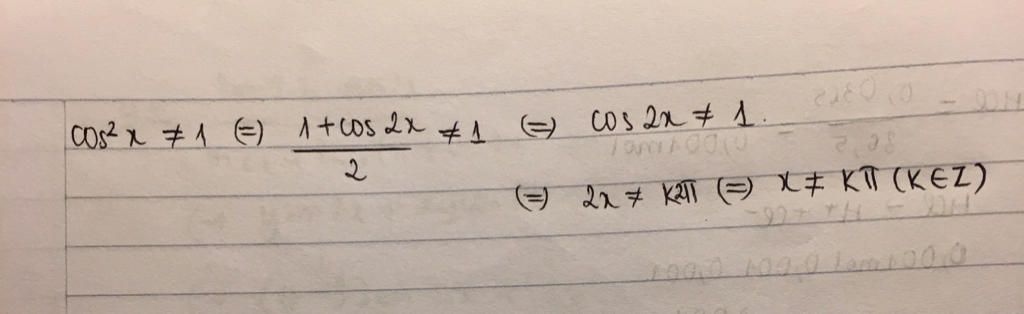 cos² x ≠ 1 (=) (1+cos 2x)/2 ≠ 1 (=) cos 2x ≠ 1.
(=) 2x ≠ K2π (=) x ≠ Kπ (K∈Z)